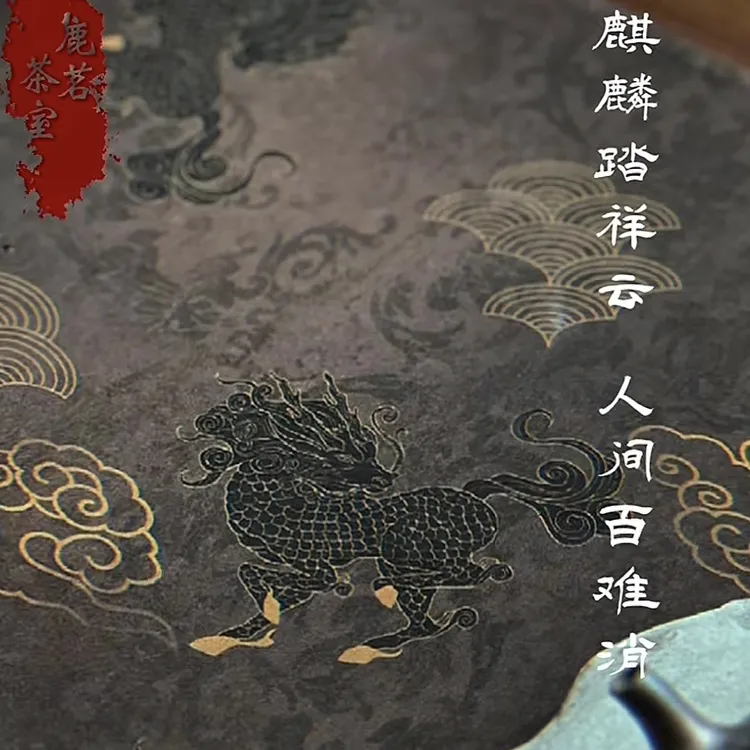 鹿茗
茶室
麒麟踏祥云 人间百难消